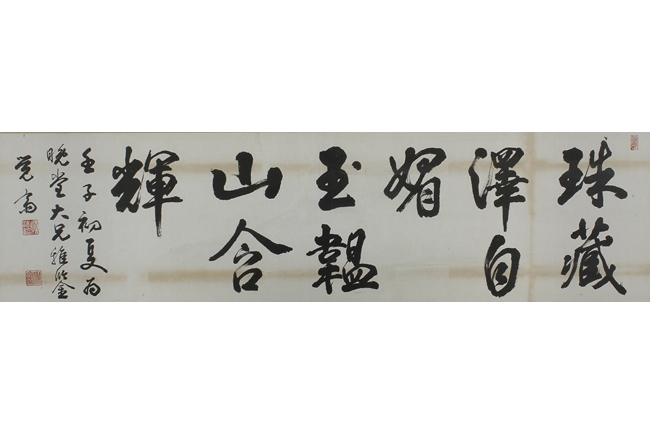 珠藏
澤自
媚
玉韞
山含
輝
壬子初夏为
晚堂大兄雅鑒